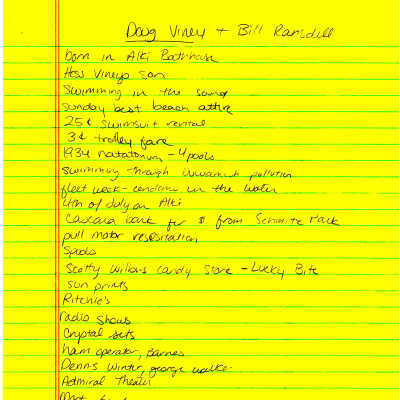 Doug Viney + Bill Ramsdell
born in Alki Bathhouse
Hess Vineys son
Swimming in the sound
Sunday best beach attire
25¢ swimsuit rental
3¢ trolley fare
1934 natatorium - 4 pools
swimming through Duwamish pollution
fleet week - condoms in the water
4th of July on Alki
Cascara bark for $ from Seminite Track
pull motor respiration
Spuds
Scotty Willows candy store - Lucky Bite
sun prints
Ritchie's
radio shows
Crystal sets
ham operator, Barnes
Dennis Winter, george walker
Admiral Theater